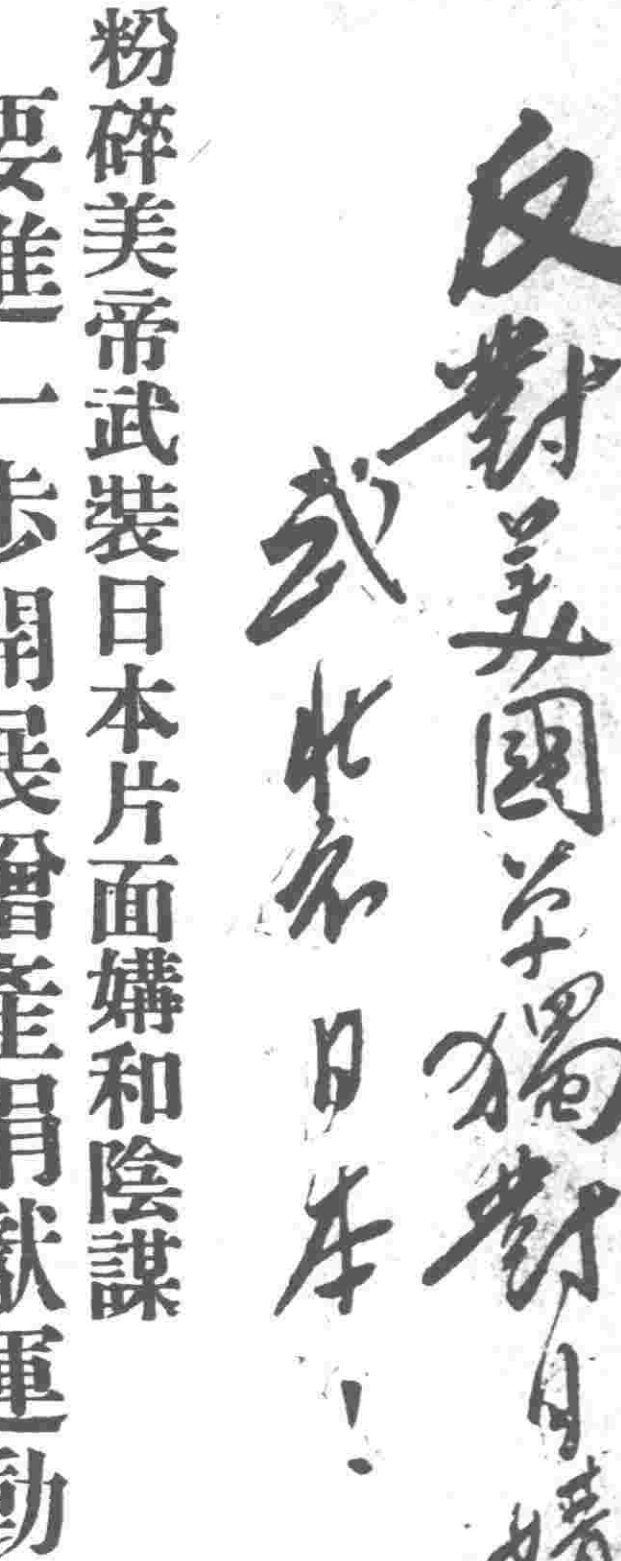 反對美國单獨對日媾
武裝日本！
粉碎美帝武裝日本片面媾和陰謀
要進一步開展增產捐獻運動